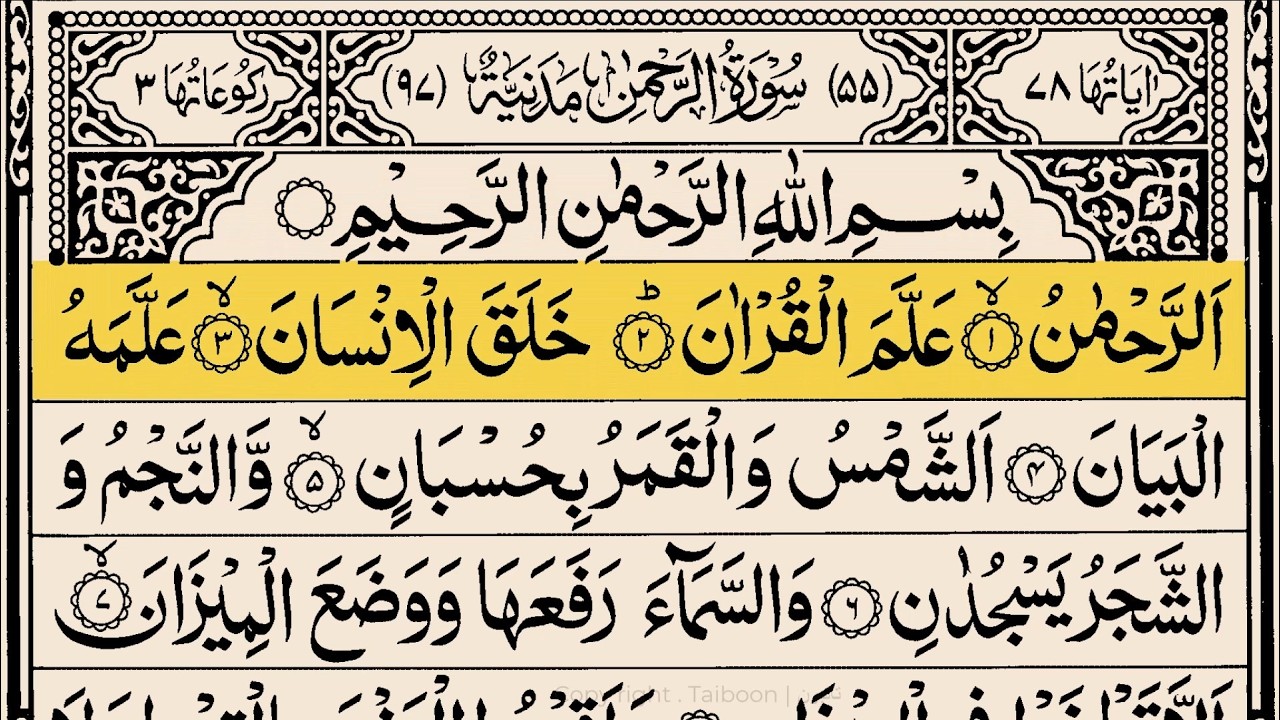 اٰيَاتُهَا ٧٨ (٥٥) سُوْرَةُ الرَّحْمٰنِ مَدَنِيَّةٌ (٩٧) رُكُوْعَاتُهَا ٣
بِسْمِ اللّٰهِ الرَّحْمٰنِ الرَّحِيْمِ
اَلرَّحْمٰنُ ۙ﴿۱﴾ عَلَّمَ الْقُرْاٰنَ ؕ﴿۲﴾ خَلَقَ الْاِنْسَانَ ۙ﴿۳﴾ عَلَّمَهُ
الْبَيَانَ ﴿۴﴾ اَلشَّمْسُ وَالْقَمَرُ بِحُسْبَانٍ ۙ﴿۵﴾ وَّالنَّجْمُ وَ
الشَّجَرُ يَسْجُدٰنِ ﴿۶﴾ وَالسَّمَآءَ رَفَعَهَا وَوَضَعَ الْمِيْزَانَ ۙ﴿۷﴾
Copyright . Taiboon |